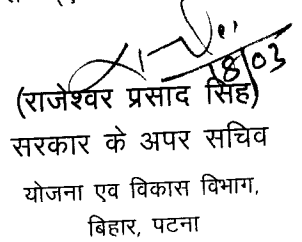 18/03
(राजेश्वर प्रसाद सिंह)
सरकार के अपर सचिव
योजना एव विकास विभाग,
बिहार, पटना